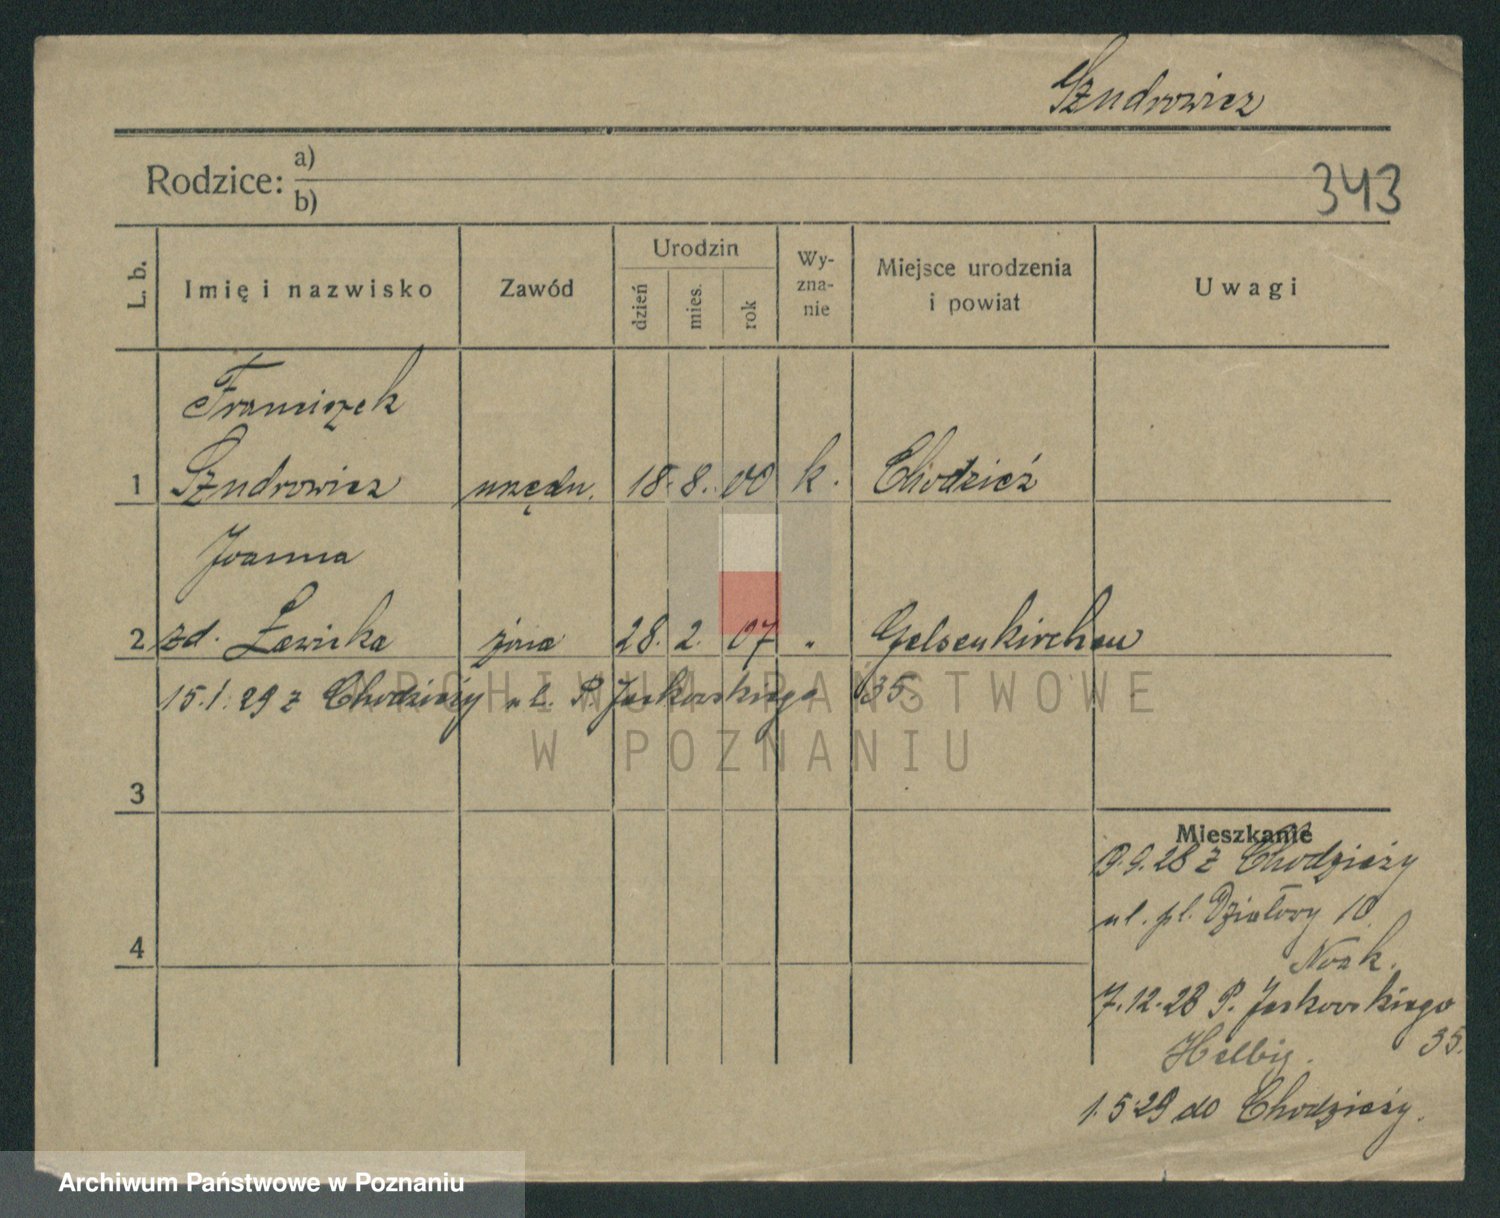 Szudrowicz
Rodzice: a)
b)
343
L. b.
Imię i nazwisko
Zawód
Urodzin
dzień
mies.
rok
Wy-
zna-
nie
Miejsce urodzenia
i powiat
Uwagi
Franciszek
1 Szudrowicz urzędn. 18. 8. 00 k. Chodzież
Joanna
2 zd. Ławicka żona 28. 2. 07 „ Gelsenkirchen
15.1.29 z Chodzieży ul. P. Jackowskiego 35.
ARCHIWUM PAŃSTWOWE
W POZNANIU
3
Mieszkanie
9.28 z Chodzieży
ul. pl. Działowy 10
4
7.12.28 P. Jackowskiego
Helbig. 35.
1.5.29 do Chodzieży.
Archiwum Państwowe w Poznaniu